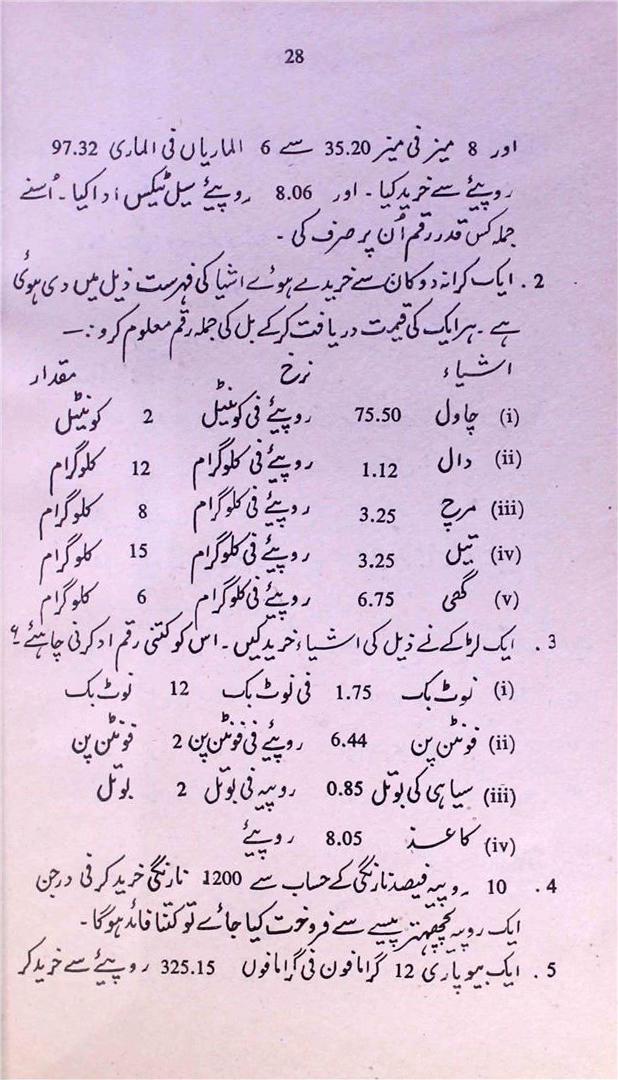 28
اور 8 میز فی میز 35.20 سے 6 الماریاں فی الماری 97.32
روپیئے سے خرید کیا ۔ اور 8.06 روپیئے سیل ٹیکس ادا کیا ۔ اُسنے
جملہ کس قدر رقم اُن پر صرف کی ۔
2. ایک کرانہ دوکان سے خریدے ہوئے اشیا کی فہرست ذیل میں دی ہوئی
ہے ۔ ہر ایک کی قیمت دریافت کر کے بل کی جملہ رقم معلوم کرو :۔
اشیاء نرخ مقدار
(i) چاول 75.50 روپیئے فی کونٹیل 2 کونٹیل
(ii) دال 1.12 روپیئے فی کلوگرام 12 کلوگرام
(iii) مرچ 3.25 روپیئے فی کلوگرام 8 کلوگرام
(iv) تیل 3.25 روپیئے فی کلوگرام 15 کلوگرام
(v) گھی 6.75 روپیئے فی کلوگرام 6 کلوگرام
3. ایک لڑکے نے ذیل کی اشیاء خرید کیں ۔ اس کو کتنی رقم اد کرنی چاہیئے ؟
(i) نوٹ بک 1.75 فی نوٹ بک 12 نوٹ بک
(ii) فونٹن پن 6.44 روپیئے فی فونٹن پن 2 فونٹن پن
(iii) سیاہی کی بوتل 0.85 روپیہ فی بوتل 2 بوتل
(iv) کاغذ 8.05 روپیئے
4. 10 روپیہ فیصد نارنگی کے حساب سے 1200 نارنگی خرید کر فی درجن
ایک روپیہ پچھتر پیسے سے فروخت کیا جائے تو کتنا فائد ہوگا ۔
5. ایک بیوپاری 12 گرامافون فی گرامافون 325.15 روپیئے سے خرید کر